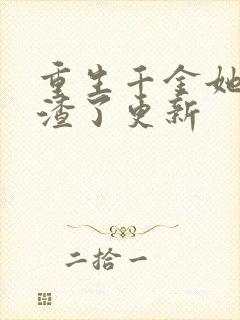 重生千金她
渣了更新
二拾一